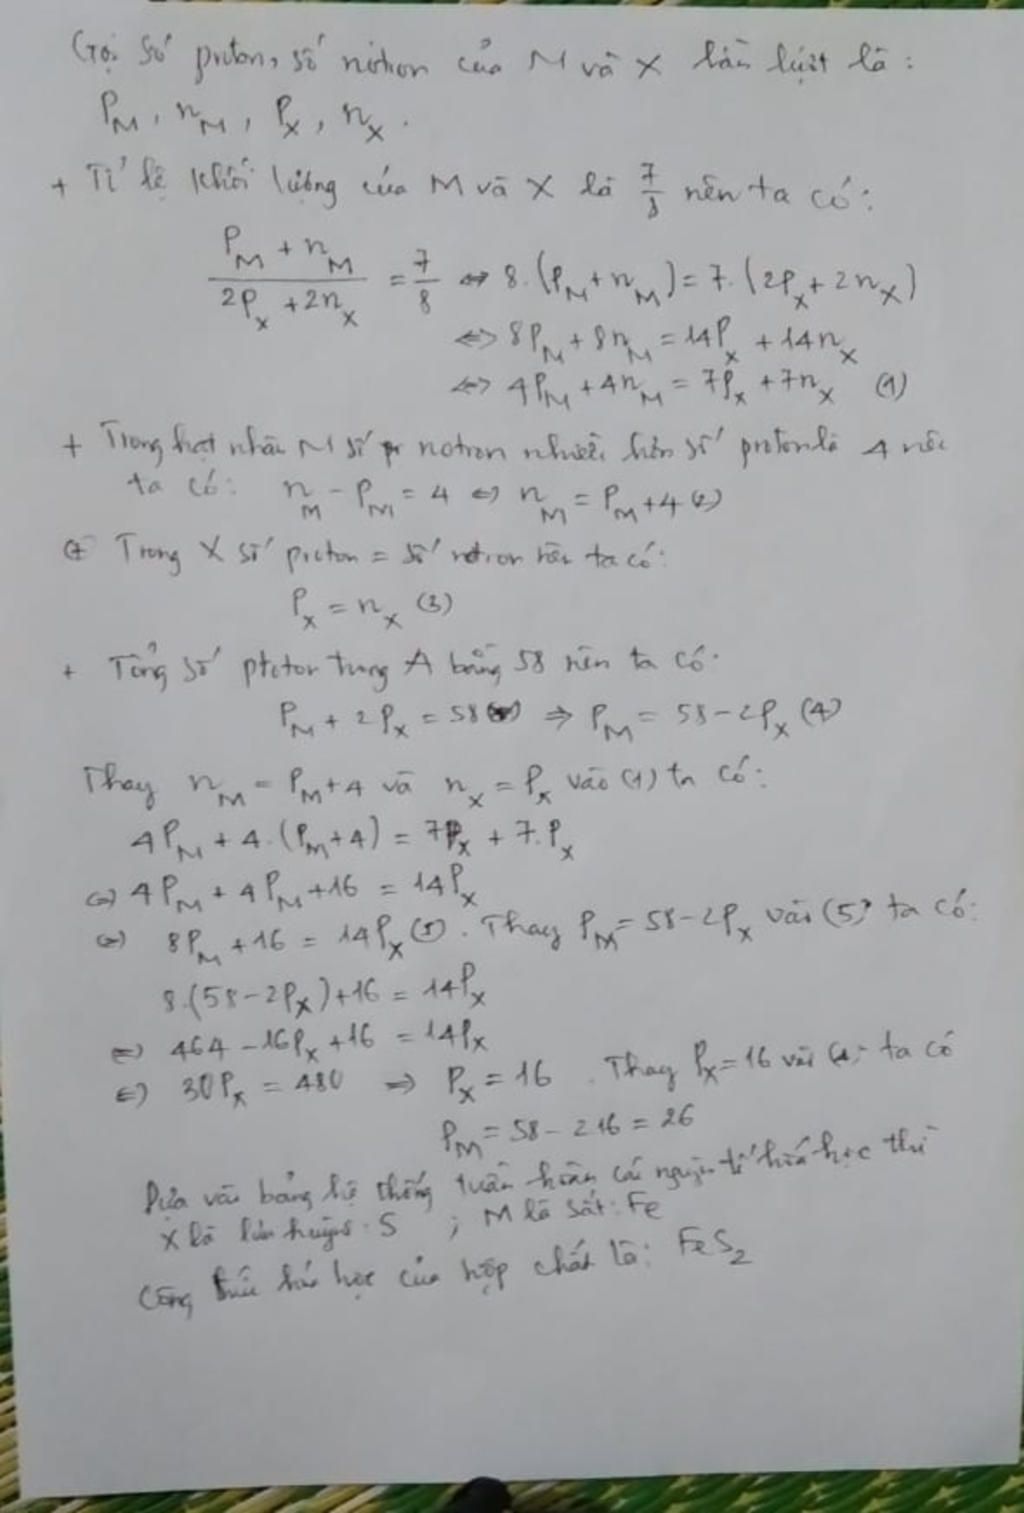 Gọi số proton, số nơtron của M và X lần lượt là :
P_M, n_M, P_X, n_X.
+ Tỉ lệ khối lượng của M và X là 7/8 nên ta có:
(P_M + n_M)/(2P_X + 2n_X) = 7/8 ⇔ 8.(P_M + n_M) = 7.(2P_X + 2n_X)
⇔ 8P_M + 8n_M = 14P_X + 14n_X
⇔ 4P_M + 4n_M = 7P_X + 7n_X (1)
+ Trong hạt nhân M số notron nhiều hơn số proton là 4 nên
ta có: n_M - P_M = 4 ⇔ n_M = P_M + 4 (2)
+ Trong X số proton = số notron nên ta có:
P_X = n_X (3)
+ Tổng số ptoton trong A bằng 58 nên ta có:
P_M + 2P_X = 58 ⇒ P_M = 58 - 2P_X (4)
Thay n_M = P_M + 4 và n_X = P_X vào (1) ta có:
4P_M + 4.(P_M + 4) = 7P_X + 7.P_X
⇔ 4P_M + 4P_M + 16 = 14P_X
⇔ 8P_M + 16 = 14P_X (5). Thay P_M = 58 - 2P_X vào (5) ta có:
8.(58 - 2P_X) + 16 = 14P_X
⇔ 464 - 16P_X + 16 = 14P_X
⇔ 30P_X = 480 ⇒ P_X = 16. Thay P_X = 16 vào (4) ta có
P_M = 58 - 2.16 = 26
Dựa vào bảng hệ thống tuần hoàn các nguyên tố hóa học thì
X là lưu huỳnh: S ; M là sắt: Fe
Công thức hóa học của hợp chất là: FeS₂